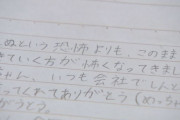 ぬという恐怖よりも、このまま
ていく方が怖くなってきまし
ゃん、いつも会社でしんど
ってくれてありがとう
がとう